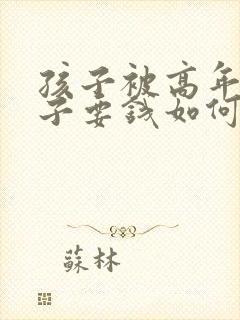 孩子被高年
子要钱如何
蘇林